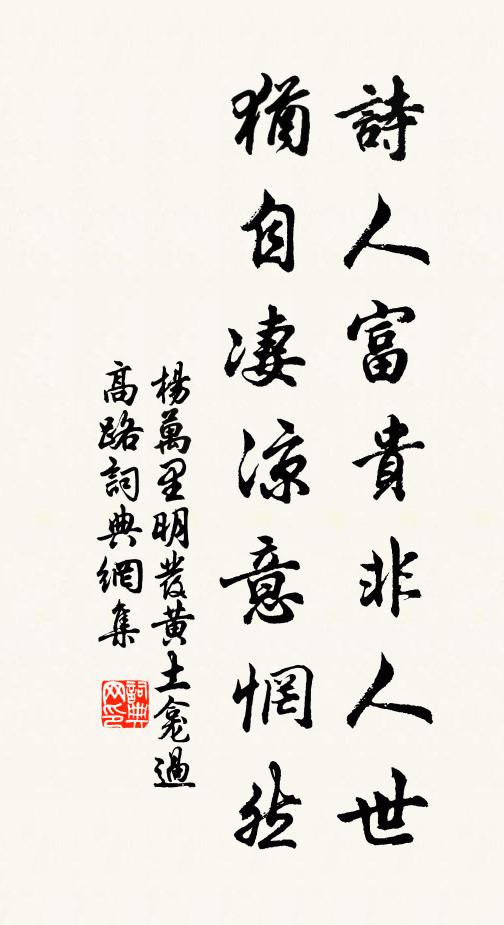 詩人富貴非人世
猶自凄涼意惘然
楊萬里明發黃土龛過
高路詞典網集
詞典网印